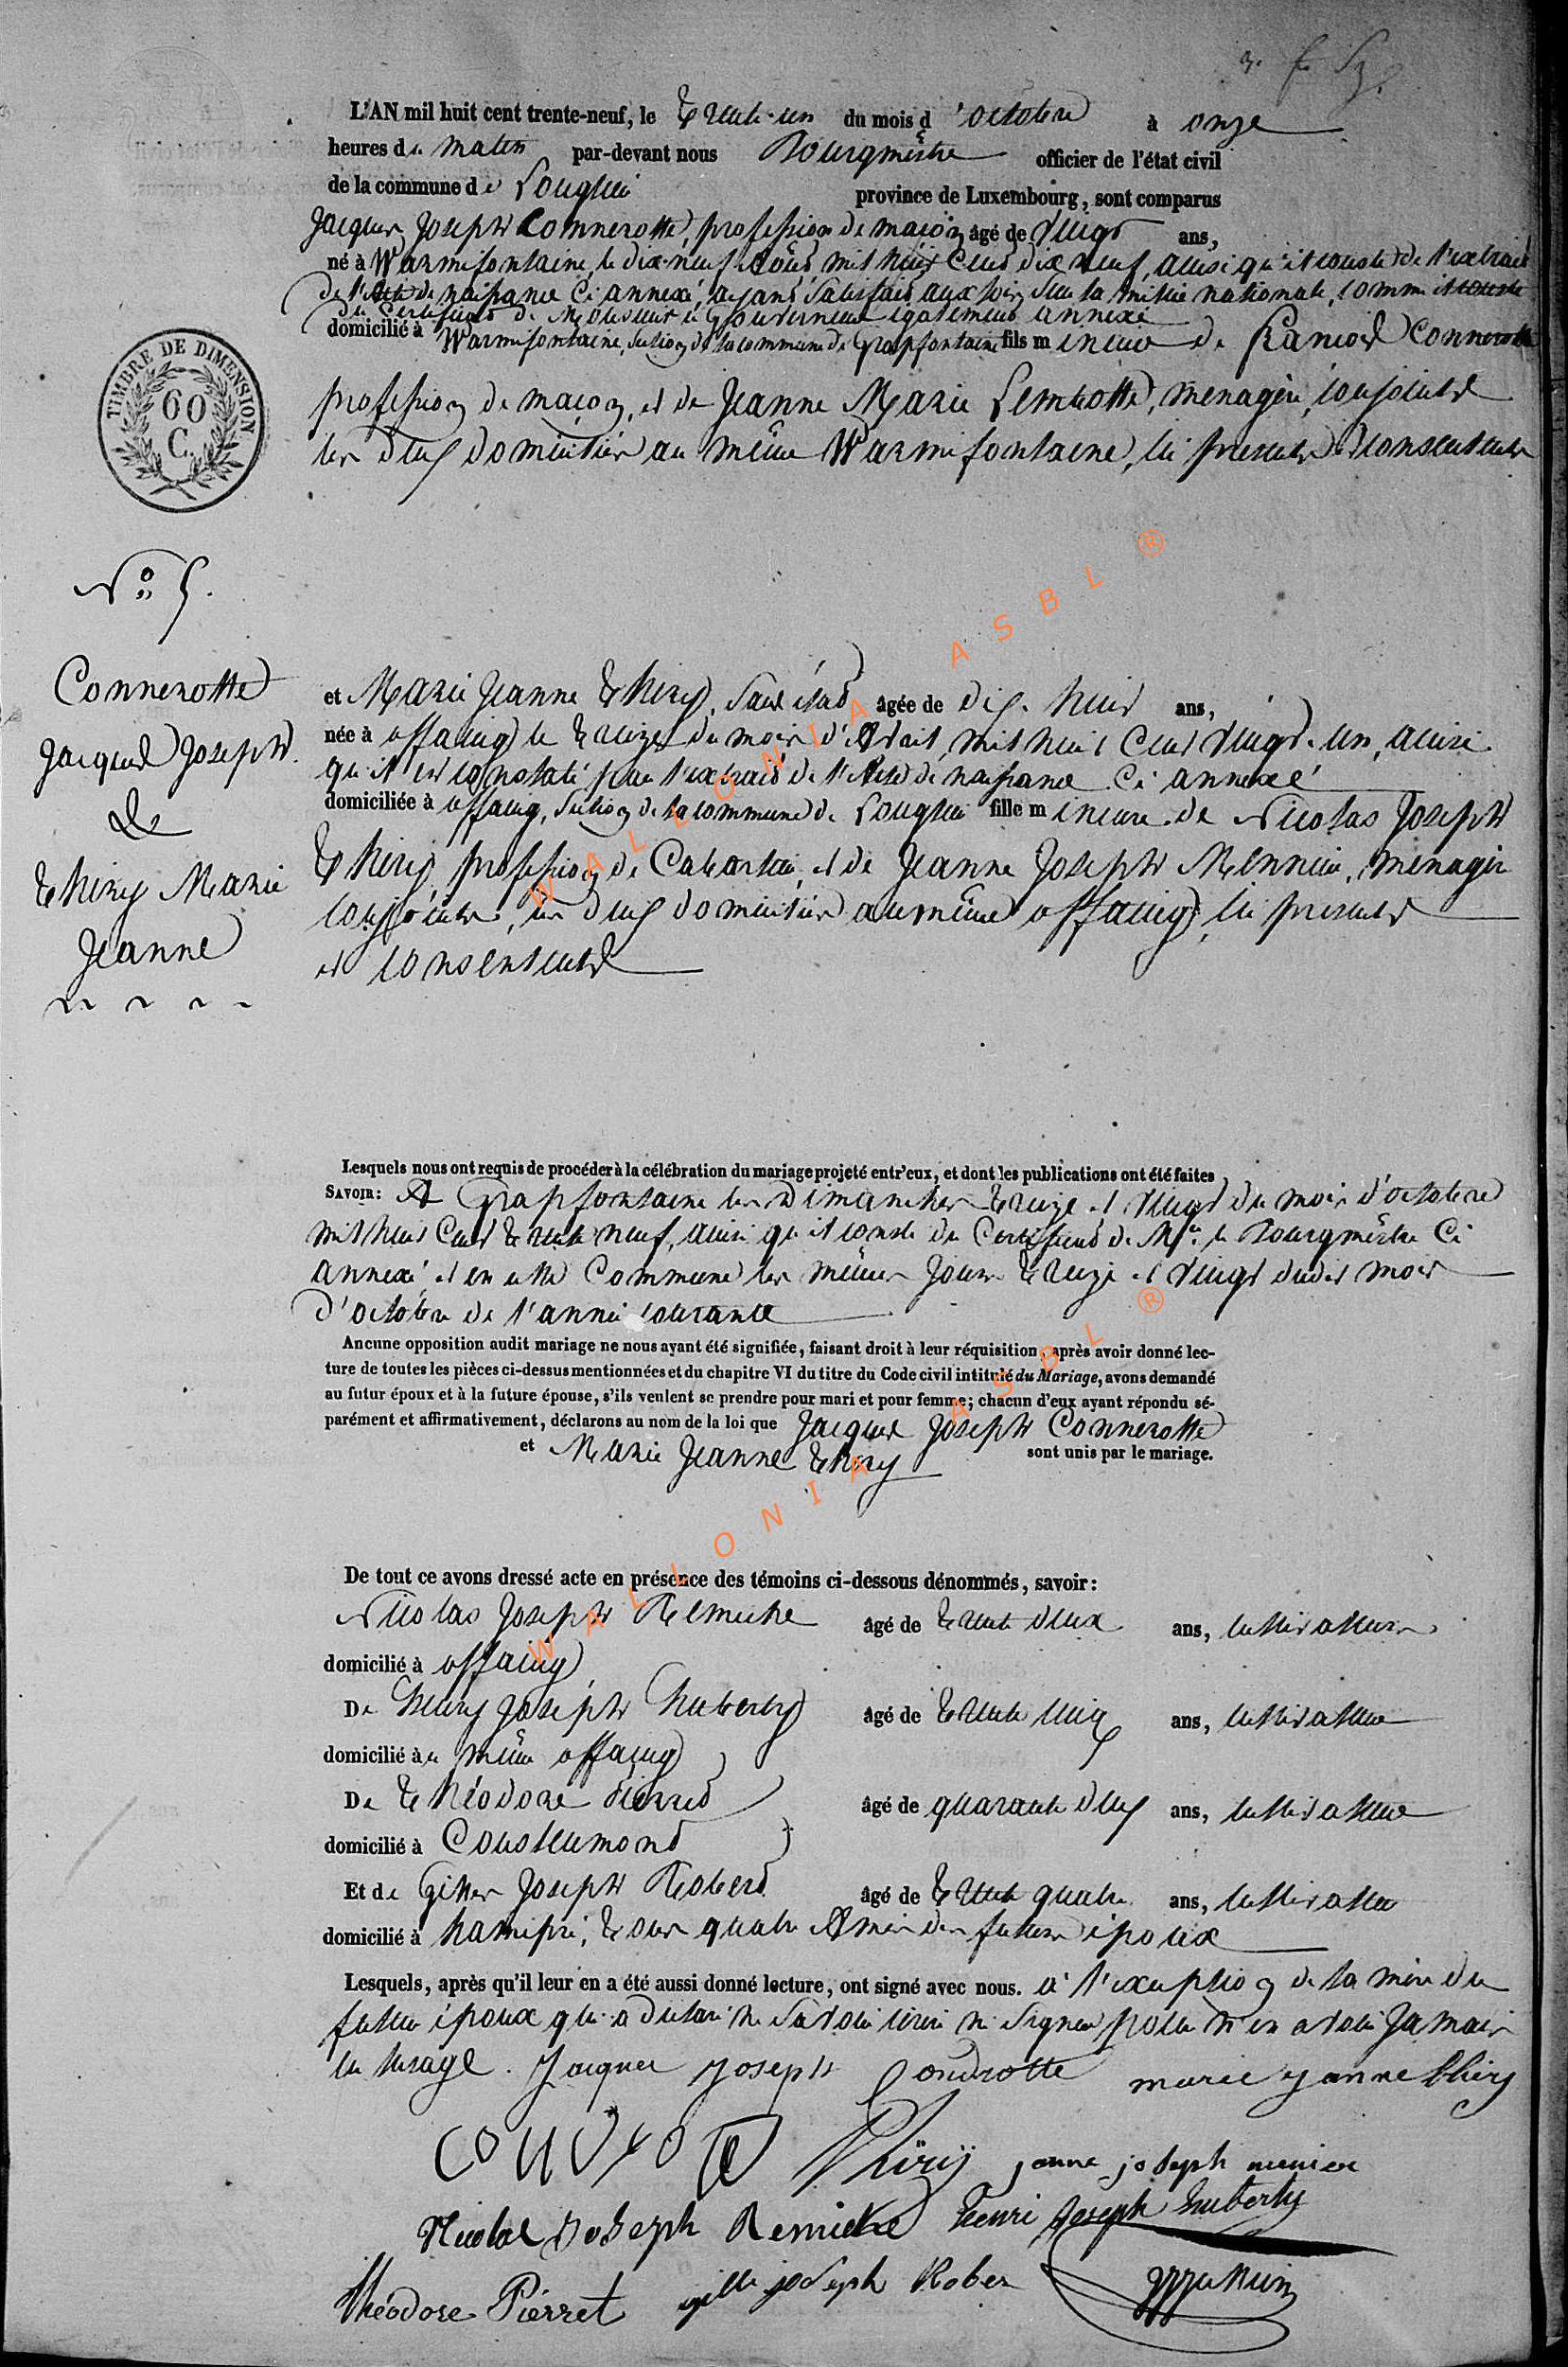 L'AN mil huit cent trente-neuf, le trente-un du mois d'octobre à onze
heures du matin par-devant nous Bourgmestre officier de l'état civil
de la commune de Longlier province de Luxembourg, sont comparus
Jacques Joseph Connerotte, profession de maçon âgé de vingt ans,
né à Warmifontaine, le dix-neuf août mil huit cent dix neuf, ainsi qu'il conste de l'extrait
de l'acte de naissance ci annexé, ayant satisfait aux loix sur la milice nationale, comme il conste
du certificat de Monsieur le Gouverneur également annexé
domicilié à Warmifontaine, section de la commune de Grapfontaine fils mineur de François Connerotte
profession de maçon, et de Jeanne Marie Lembotte, menagère, conjoints
les deux domiciliés au même Warmifontaine, ici présents et consentants
TIMBRE DE DIMENSION
60
C.
N° 5.
Connerotte
Jacques Joseph
&
Thiry Marie
Jeanne
et Marie Jeanne Thiry, sans état âgée de dix-huit ans,
née à offaing le treize du mois d'avril mil huit cent vingt-un, ainsi
qu'il est constaté par l'extrait de l'acte de naissance ci annexé
domiciliée à offaing, section de la commune de Longlier fille mineure de Nicolas Joseph
Thiry, profession de Cabartier, et de Jeanne Joseph Mennier, menagère
conjoints, les deux domiciliés au même offaing, ici présents
et consentants
Lesquels nous ont requis de procéder à la célébration du mariage projeté entr'eux, et dont les publications ont été faites
SAVOIR: A Grapfontaine les Dimanches treize et vingt du mois d'octobre
mil huit cent trente neuf, ainsi qu'il conste du certificat de Mr. le Bourgmestre ci
annexé et en cette Commune les mêmes jours treize et vingt dudit mois
d'octobre de l'année courante
Aucune opposition audit mariage ne nous ayant été signifiée, faisant droit à leur réquisition, après avoir donné lec-
ture de toutes les pièces ci-dessus mentionnées et du chapitre VI du titre du Code civil intitulé du Mariage, avons demandé
au futur époux et à la future épouse, s'ils veulent se prendre pour mari et pour femme; chacun d'eux ayant répondu sé-
parément et affirmativement, déclarons au nom de la loi que Jacques Joseph Connerotte
et Marie Jeanne Thiry sont unis par le mariage.
De tout ce avons dressé acte en présence des témoins ci-dessous dénommés, savoir:
Nicolas Joseph Remiche âgé de trente deux ans, cultivateur
domicilié à offaing
De Henry Joseph Huberty âgé de trente cinq ans, cultivateur
domicilié au même offaing
De Théodore Pierret âgé de quarante deux ans, cultivateur
domicilié à Cousteumont
Et de Gilles Joseph Robert âgé de trente quatre ans, cultivateur
domicilié à hamipré, tous quatre amis des futurs époux
Lesquels, après qu'il leur en a été aussi donné lecture, ont signé avec nous. à l'exception de la mère du
futur époux qui a déclaré ne savoir écrire ni signer pour n'en avoir jamais
eu l'usage. Jacques Joseph Conerotte marie janne thiry
Thiry janne joseph menier
Nicolas Joseph Remiche Henri Joseph huberty
Théodore Pierret gille joseph Rober
WALLONIA ASBL ®
WALLONIA ASBL ®